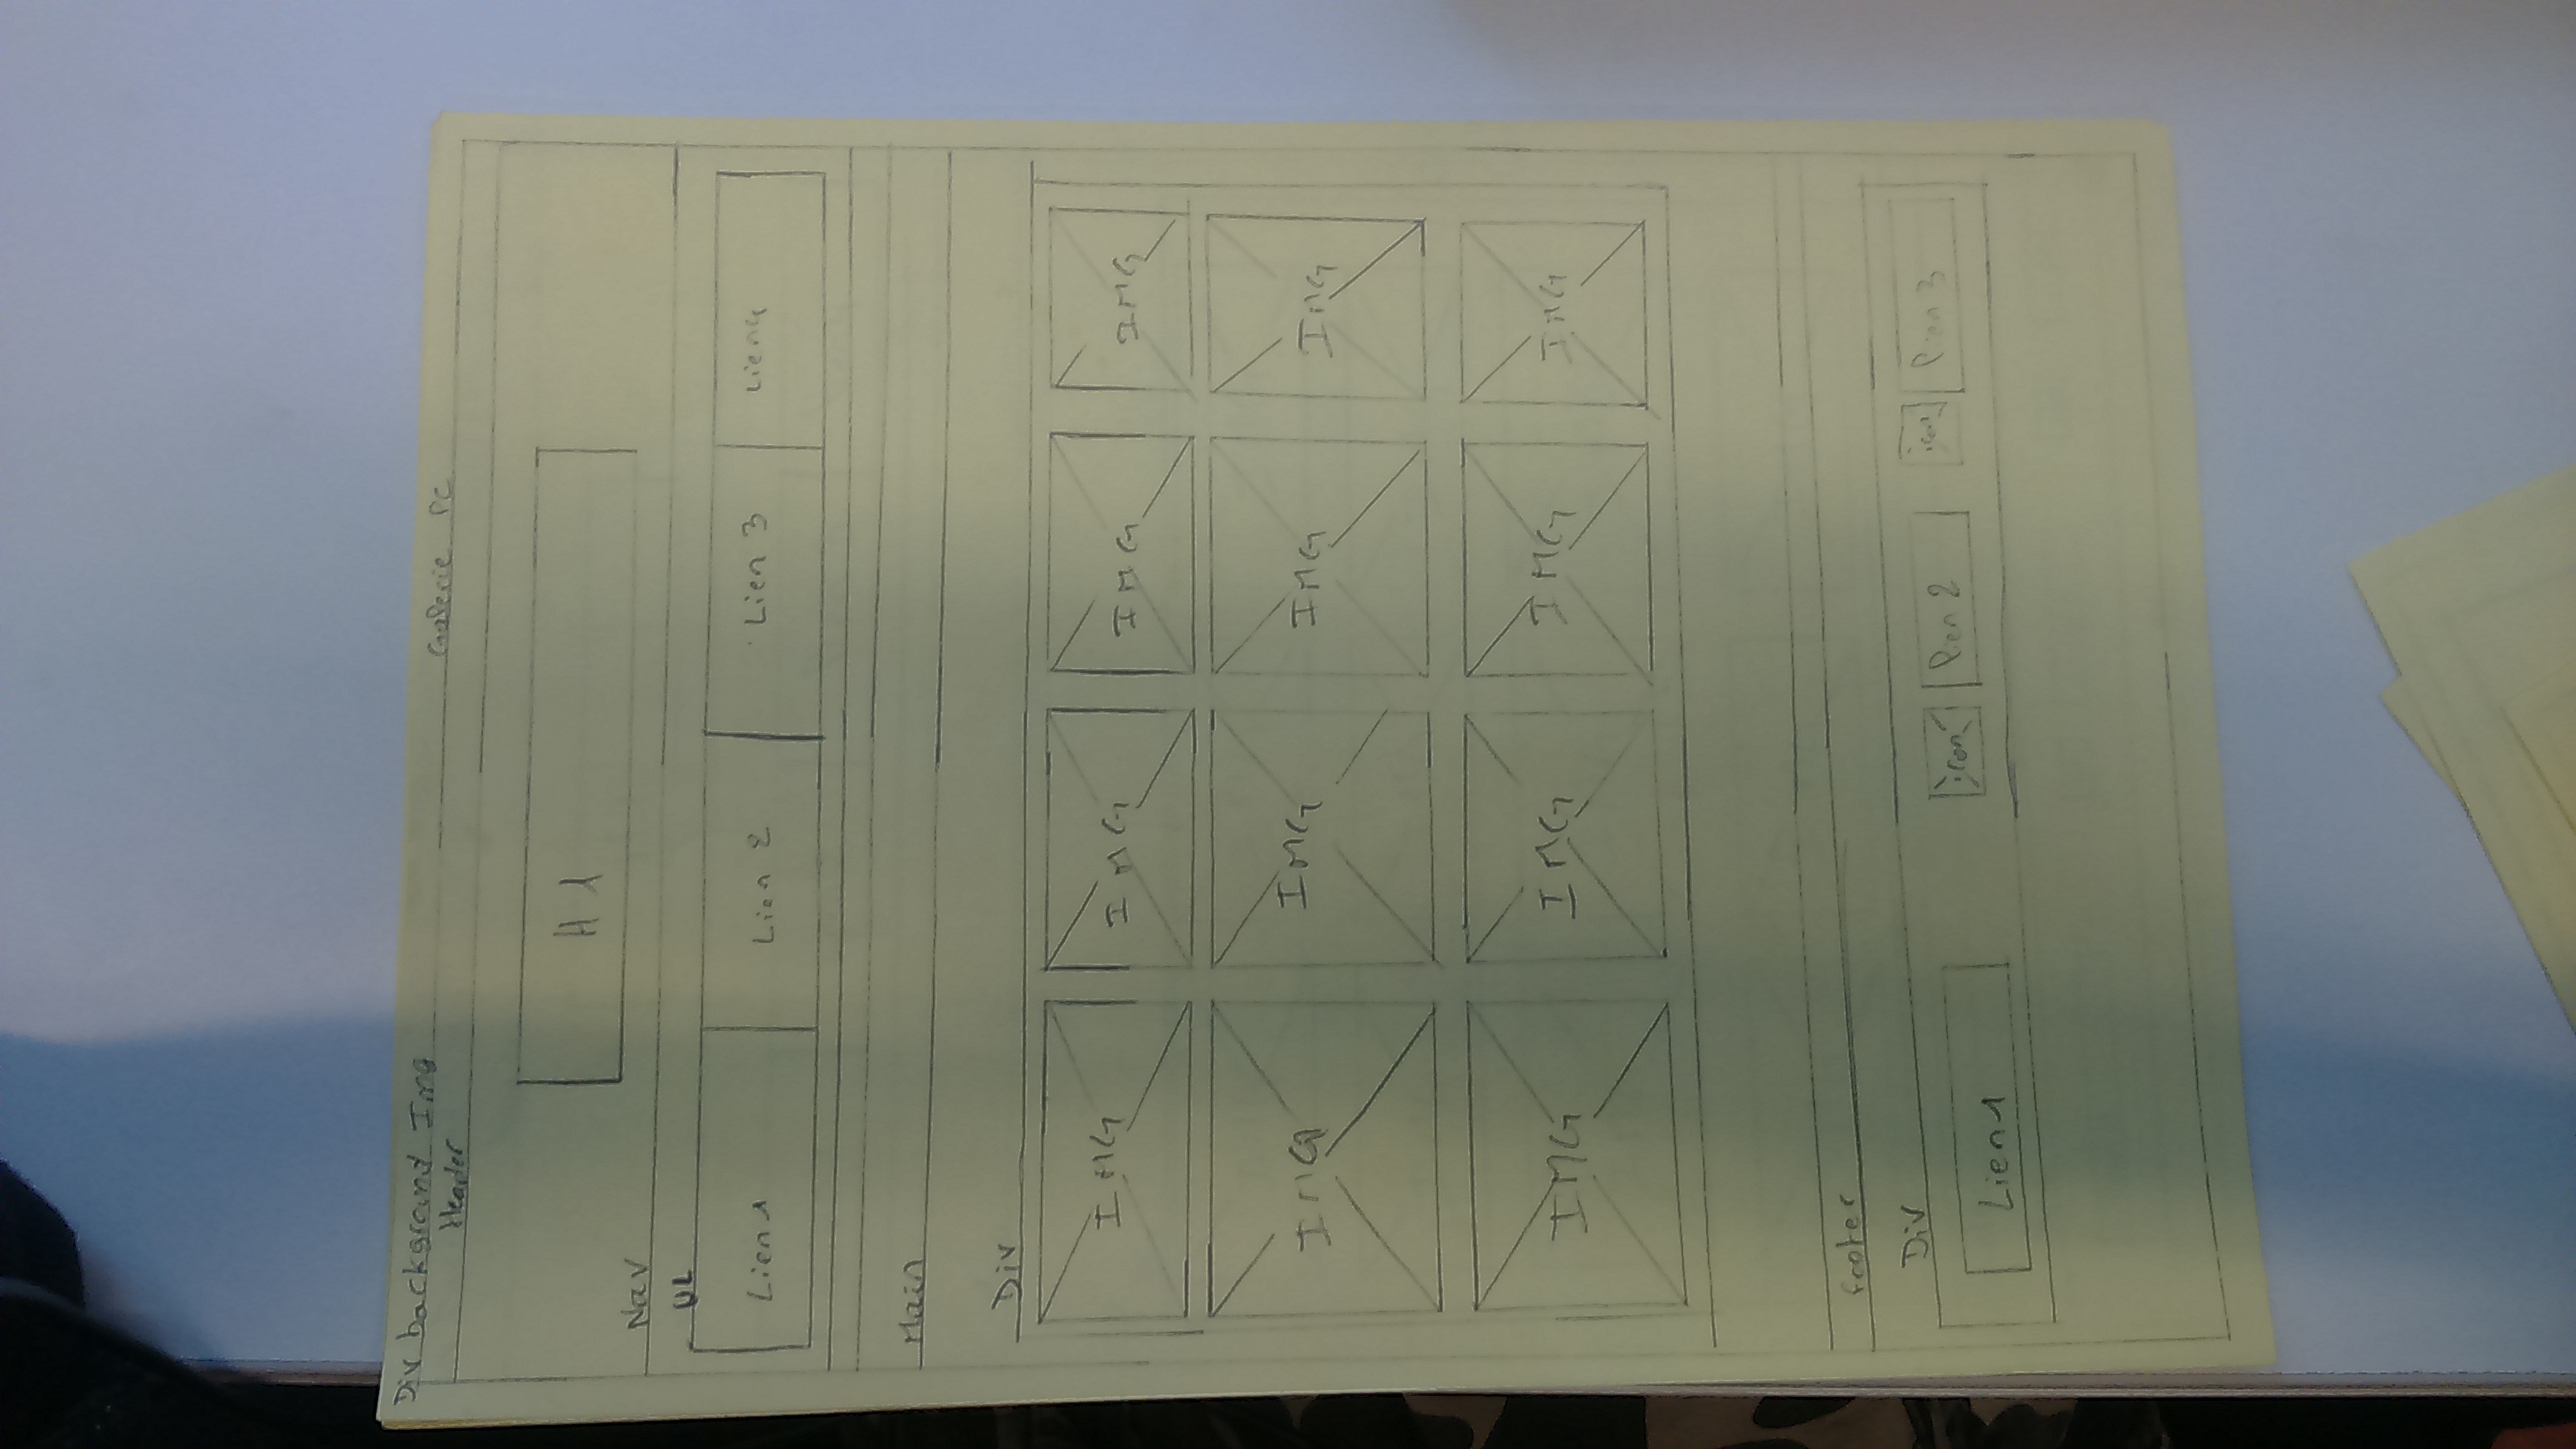 Div background Img
Galerie PC
Header
H1
Nav
UL
Lien1 Lien 2 Lien 3 Lien4
Main
Div
IMG IMG IMG IMG
IMG IMG IMG IMG
IMG IMG IMG IMG
footer
Div
Lien1 icon lien 2 icon lien 3